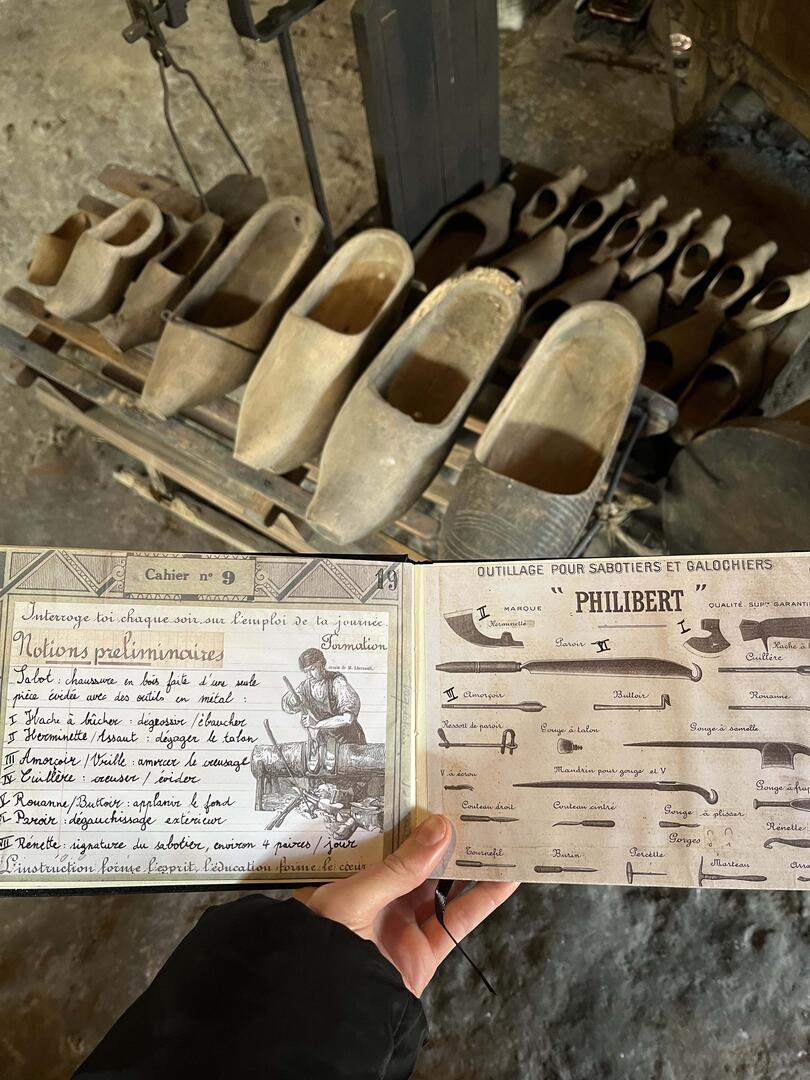 Cahier n° 9
19
Interroge toi chaque soir sur l'emploi de ta journée
Notions preliminaires
Formation
Sabot : chaussure en bois faite d'une seule
pièce évidée avec des outils en métal :
I Hache à bûcher : dégrossir / ébaucher
II Herminette / Assaut : dégager le talon
III Amorçoir / Vrille : amorcer le creusage
IV Cuillère : creuser / évider
V Rouanne / Buttoir : applanir le fond
VI Paroir : dégauchissage extérieur
VII Rénette : signature du sabotier, environ 4 paires / jour
L'instruction forme l'esprit, l'éducation forme le cœur
OUTILLAGE POUR SABOTIERS ET GALOCHIERS
MARQUE " PHILIBERT " QUALITÉ SUPre GARANTI
II
Herminette
Paroir VI
I
Hache à
Cuillère
III Amorçoir
Buttoir
Rouanne
Ressort de paroir
Gouge à talon
Gouge à semelle
V à écrou
Mandrin pour gouge et V
Couteau droit
Couteau cintré
Gouge à plisser
Gorges
Rénette
Tournefil
Burin
Percette
Marteau